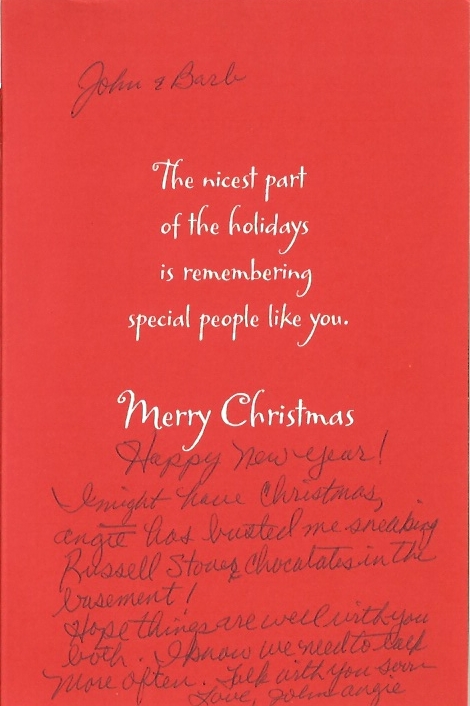 John & Barb
The nicest part
of the holidays
is remembering
special people like you.
Merry Christmas
Happy New Year!
I might have Christmas,
angie has busted me sneaking
Russell Stover chocolates in the
basement!
Hope things are well with you
both. I know we need to talk
more often. Talk with you soon
Love, John & angie